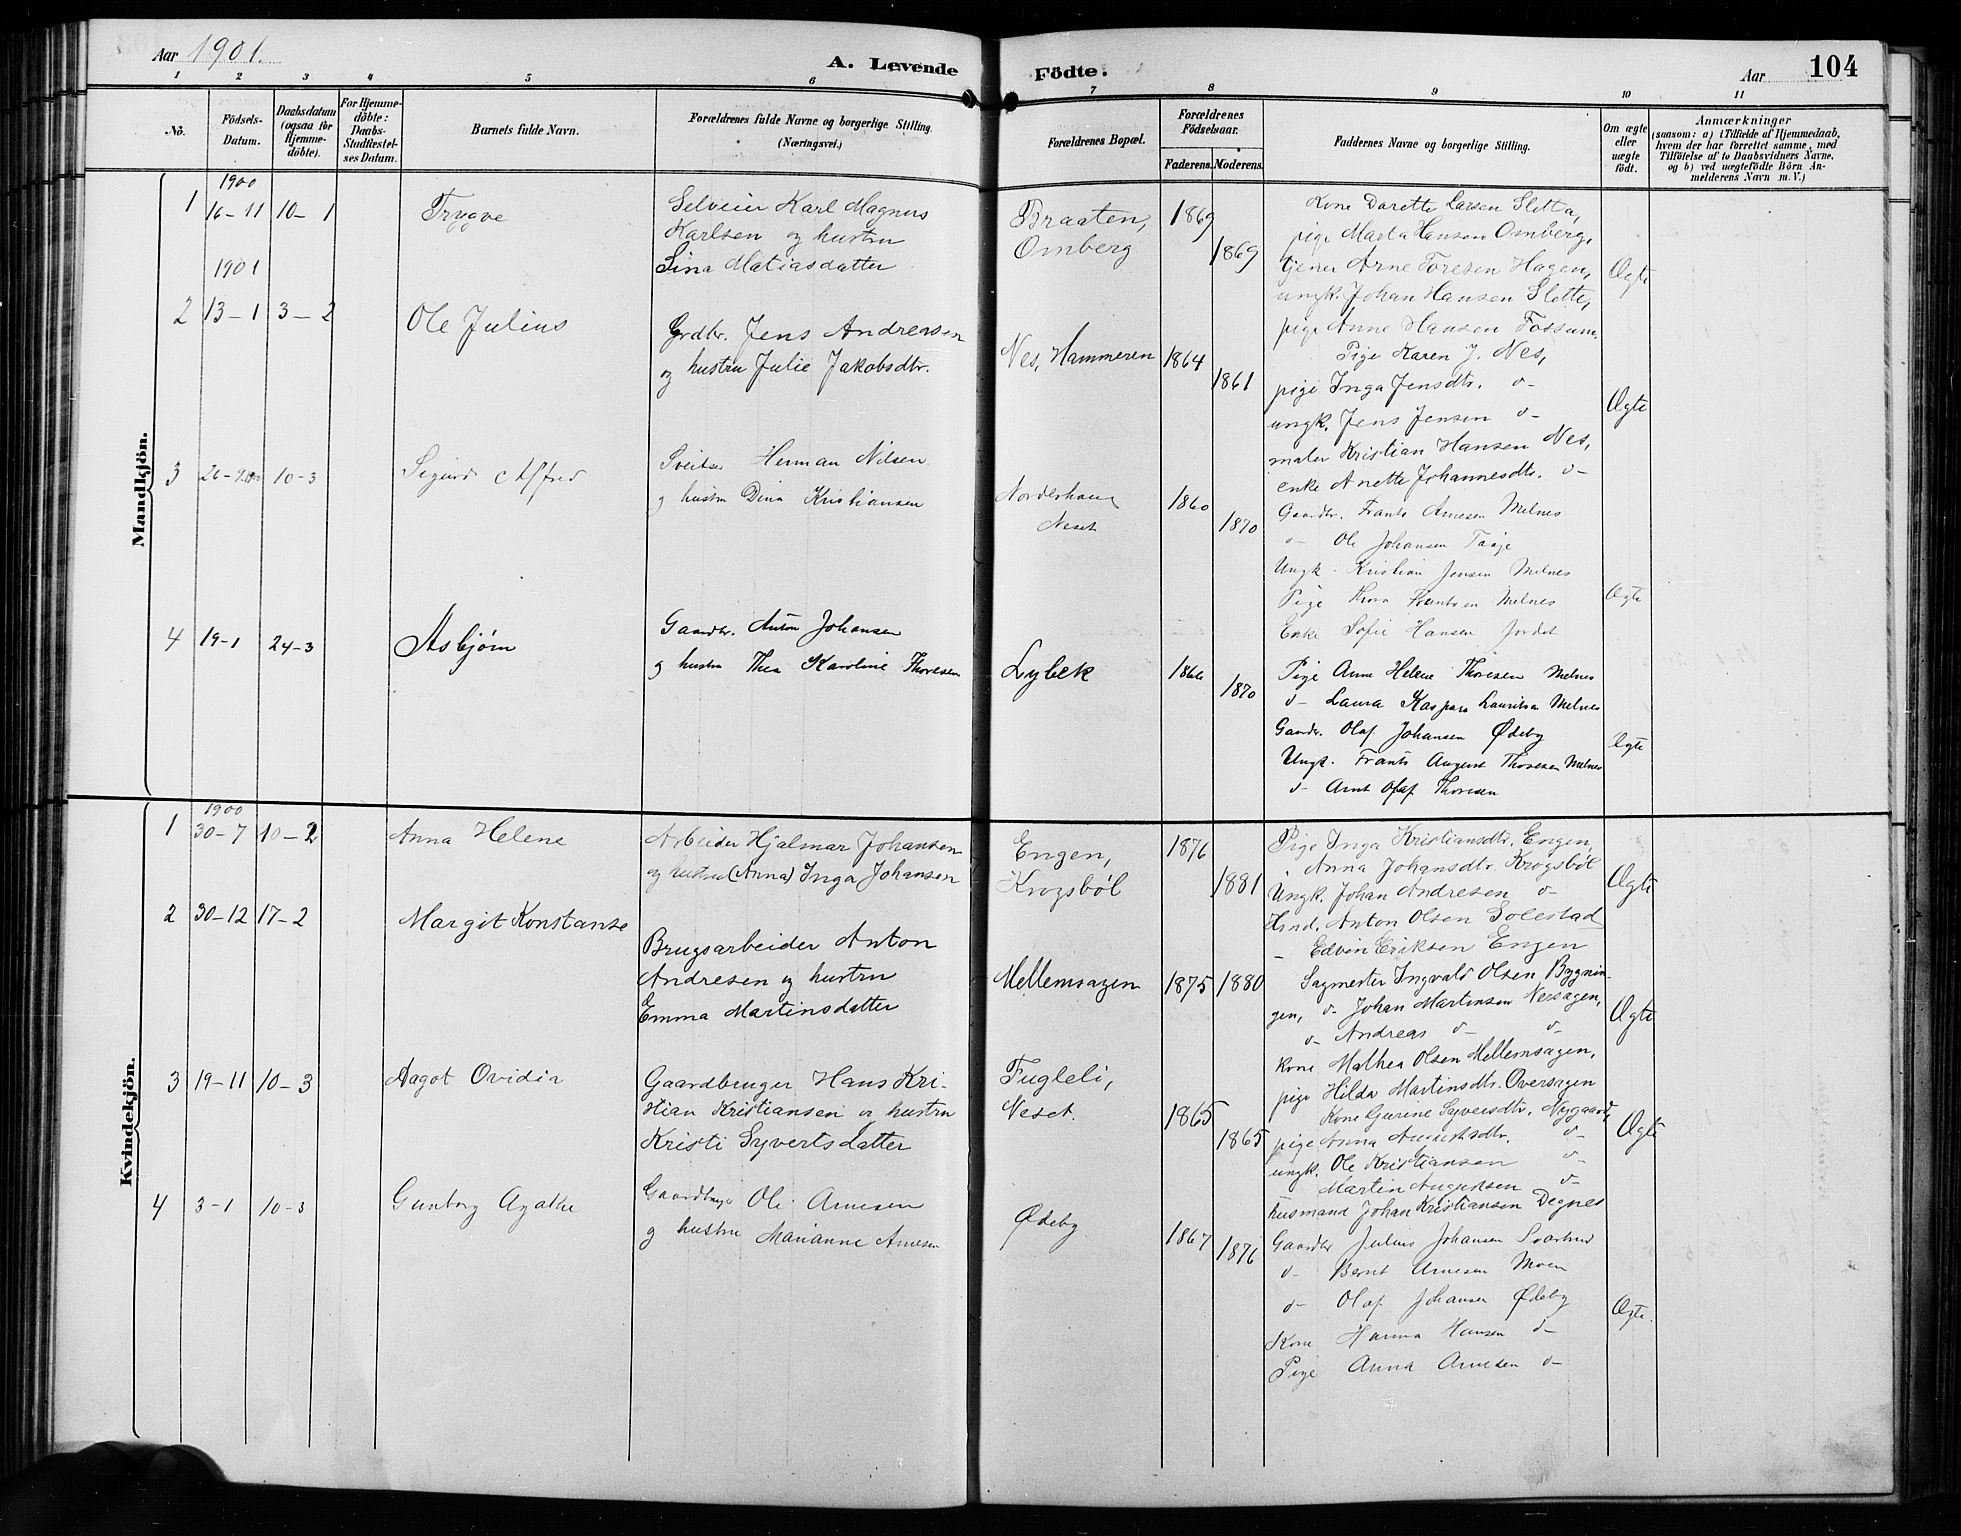 Aar 1901.
A. Levende Födte.
Aar 104
1 2 3 4 5 6 7 8 9 10 11
No.
Födsels-Datum.
Daabsdatum (ogsaa for Hjemme-döbte).
For Hjemme-döbte: Daabs-Stadfæstel-ses Datum.
Barnets fulde Navn.
Forældrenes fulde Navne og borgerlige Stilling. (Næringsvei.)
Forældrenes Bopæl.
Forældrenes Födselsaar.
Faderens. Moderens.
Faddernes Navne og borgerlige Stilling.
Om ægte eller uægte födt.
Anmærkninger
(saasom: a) i Tilfælde af Hjemmedaab,
hvem der har forrettet samme, med
Tilföielse af to Daabsvidners Navne,
og b) ved uægtefödte Börn An-
melderens Navn m. V.)
Mandkjön.
1 1900 16-11 10-1 Trygve
Selveier Karl Magnus
Karlsen og hustru
Sina Matiasdatter
Braaten,
Omberg
1869 1869
Kone Dorette Larsen Sletta,
pige Marta Hansen Omberg,
tjener Arne Toresen Hagen,
ungk. Johan Hansen Slette,
pige Anne Hansen Fossum.
Ægte
1901
2 13-1 3-2 Ole Julius
Grdbr. Jens Andreasen
og hustru Julie Jakobsdtr.
Nes, Hammeren 1864 1861
Pige Karen J. Nes,
pige Inga Jensdtr. d-
ungk. Jens Jensen d-
maler Kristian Hansen Nes,
enke Anette Johannesdtr. d-
Ægte
3 26-9 10-3 Sigurd Alfred
Sveitser Herman Nilsen
og hustru Dina Kristiansen
Norderhaug
Neset
1860 1870
Gaardbr. Frants Arnesen Melnes
d- Ole Johansen Taaje
Ungk. Kristian Jensen Melnes
Pige Thora Frantsen Melnes
Enke Sofie Hansen Jordet
Ægte
4 19-1 24-3 Asbjørn
Gaardbr. Anton Johansen
og hustru Thea Karoline Thoresen
Lybek 1866 1870
Pige Anne Helene Thoresen Melnes
d- Laura Kaspara Lauritsen Melnes
Gaardbr. Olaf Johansen Ødeby
Ungk. Frants August Thoresen Melnes
d- Arnt Olaf Thoresen
Ægte
Kvindekjön.
1 1900 30-7 10-2 Anna Helene
Arbeider Hjalmar Johansen
og hustru (Anna) Inga Johansen
Engen,
Krogsbøl
1876 1881
Pige Inga Kristiansdtr. Engen,
Anna Johansdtr. Krogsbøl
Ungk. Johan Andresen d-
Hmd. Anton Olsen Solestad
- Edvin Eriksen Engen
Ægte
2 30-12 17-2 Margit Konstanse
Brugsarbeider Anton
Andresen og hustru
Emma Martinsdatter
Mellemsagen 1875 1880
Sagmester Ingvald Olsen Bygnin-
gen, d- Johan Martinsen Nersagen,
d- Andreas d- d-
kone Mathea Olsen Mellemsagen,
pige Hilda Martinsdtr. Oversagen
Ægte
3 19-11 10-3 Aagot Ovidia
Gaardbruger Hans Kri-
stian Kristiansen og hustru
Kristi Syvertsdatter
Fugleli,
Neset.
1865 1865
Kone Gurine Syversdtr. Nygaard,
pige Anna Augustsdtr. d-
ungk. Ole Kristiansen d-
Martin Augustsen d-
husmand Johan Kristiansen Degnes
Ægte
4 3-1 10-3 Gunborg Agathe
Gaardbruger Ole Arnesen
og hustru Marianne Arnesen
Ødeby 1867 1876
Gaardbr Julius Johansen Svartrud
d- Bernt Arnesen Moen
d- Olaf Johansen Ødeby
Kone Hanna Hansen d-
Pige Anna Arnesen d-
Ægte.